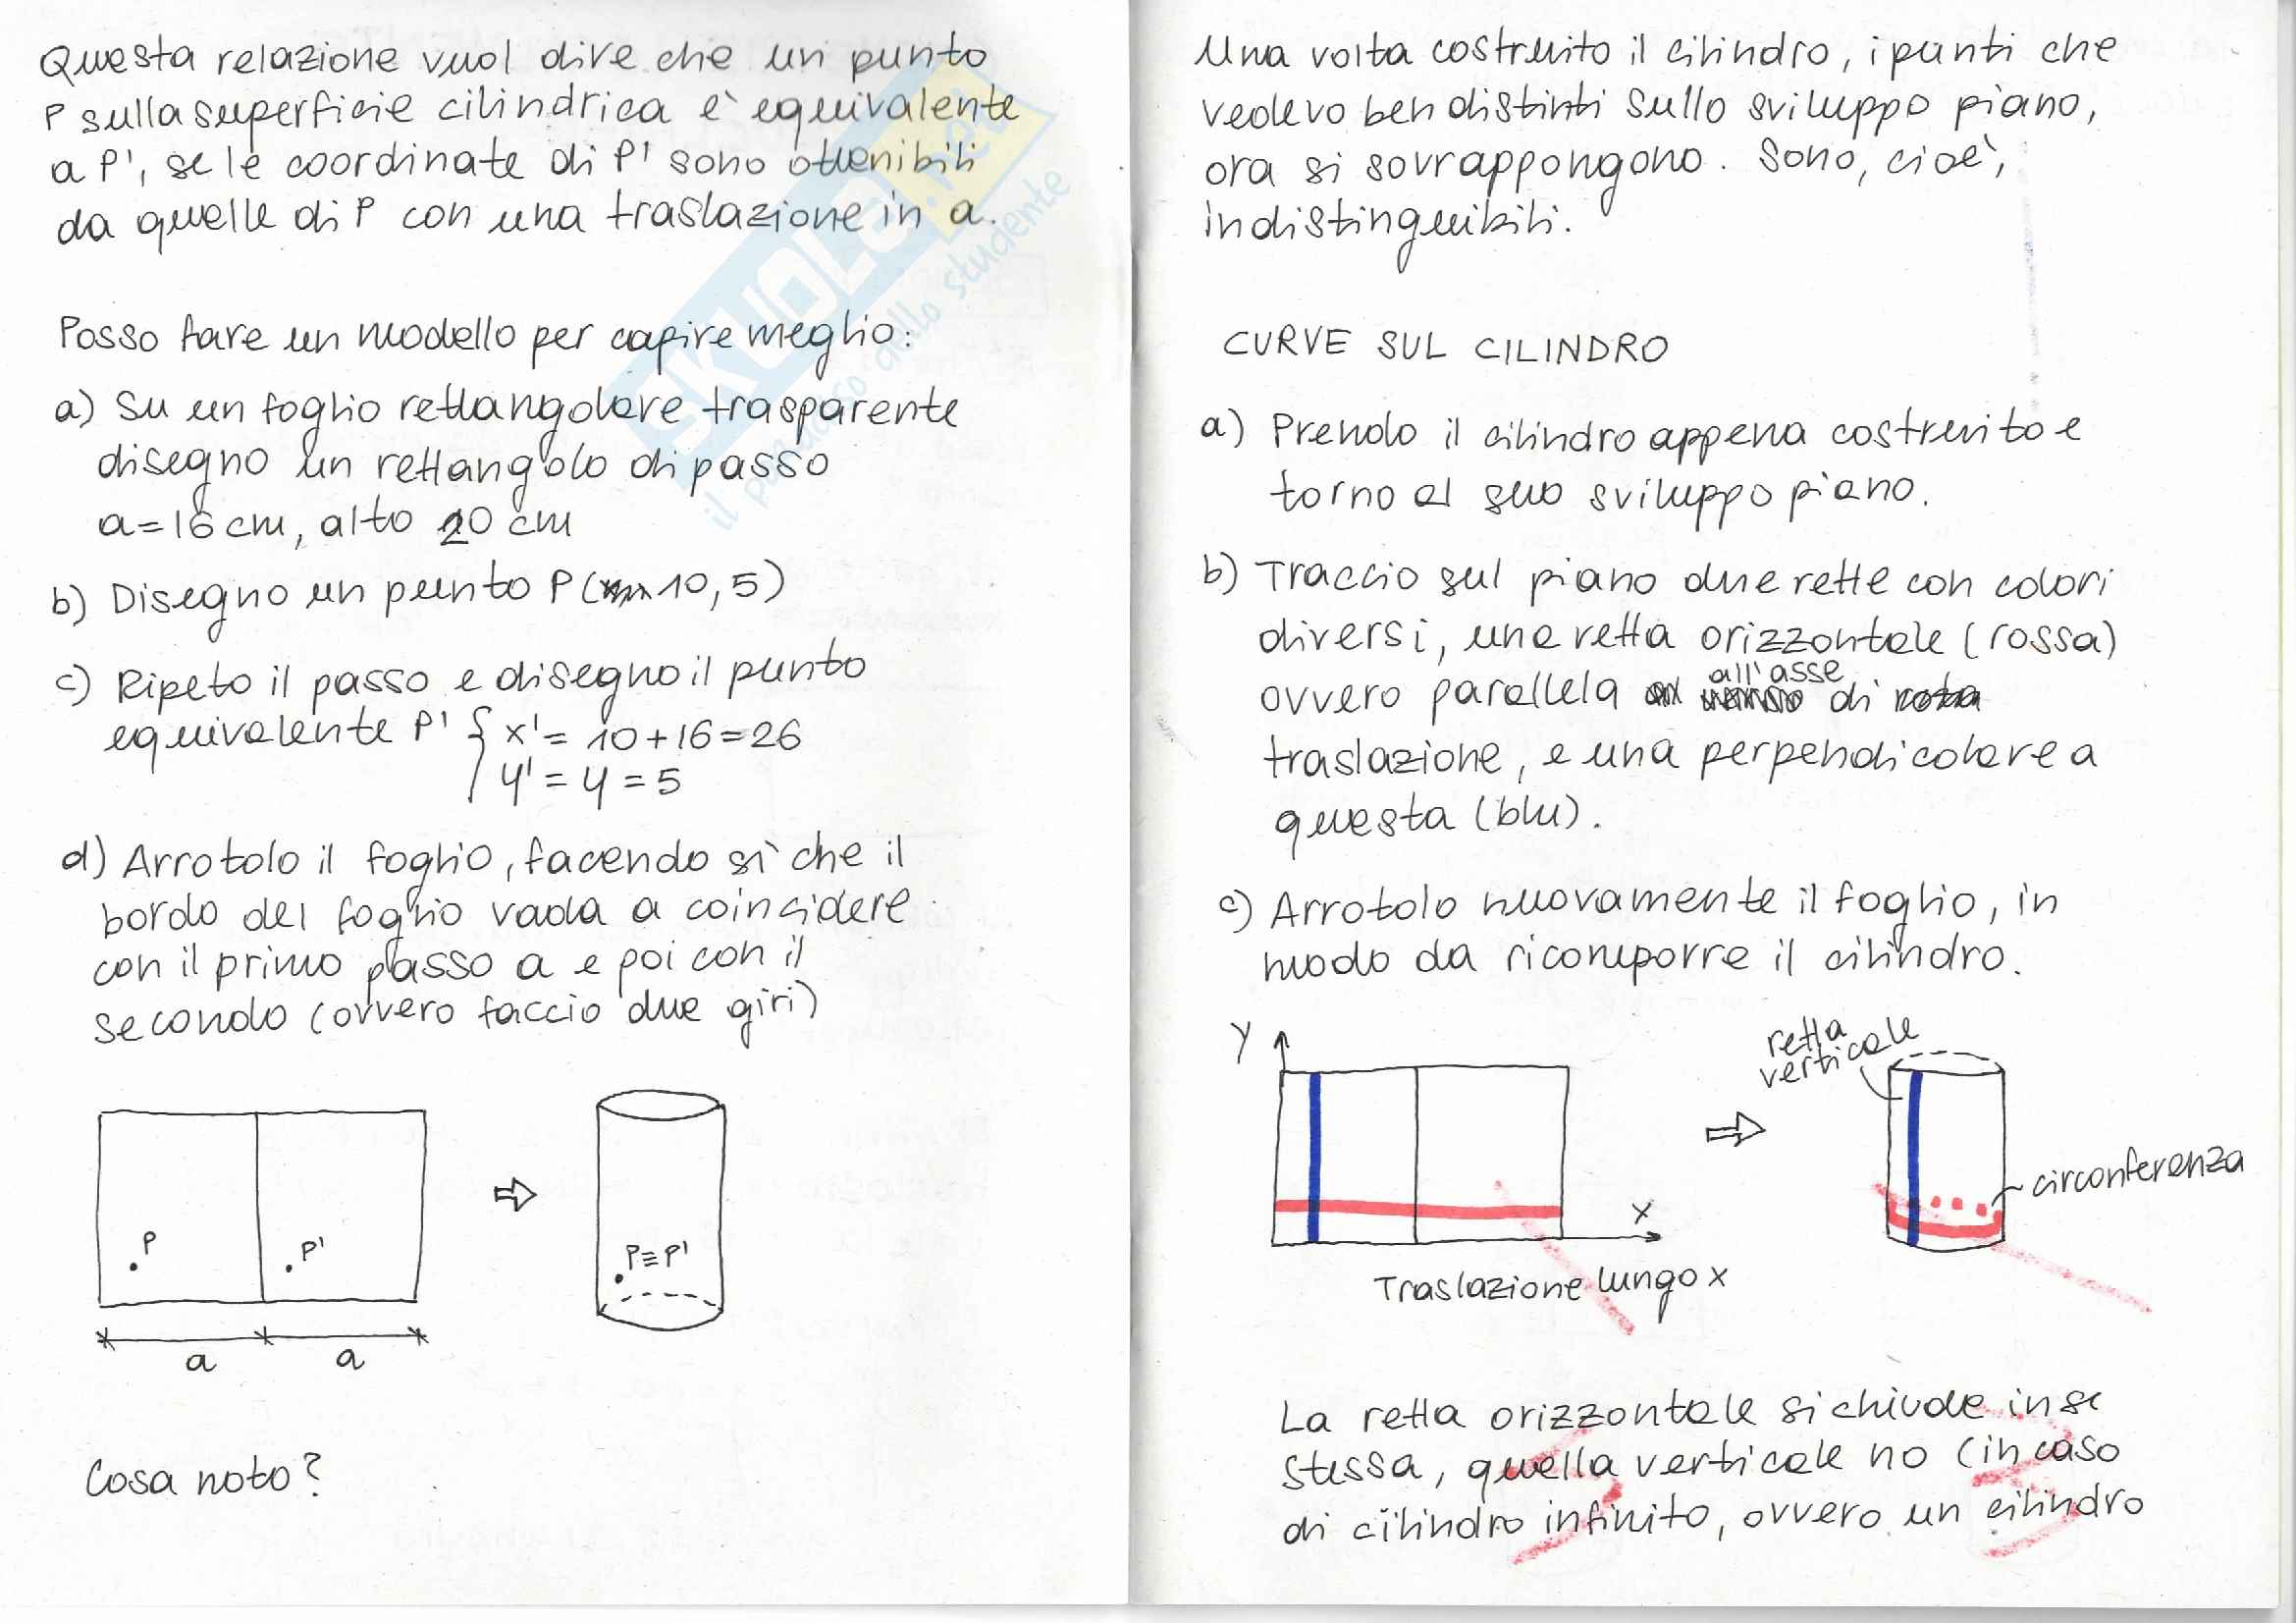 Questa relazione vuol dire che un punto
P sulla superficie cilindrica è equivalente
a P', se le coordinate di P' sono ottenibili
da quelle di P con una traslazione in a.
Posso fare un modello per capire meglio:
a) Su un foglio rettangolare trasparente
disegno un rettangolo di passo
a=16 cm, alto 20 cm
b) Disegno un punto P(10,5)
c) Ripeto il passo e disegno il punto
equivalente P' { x' = 10+16=26
y' = y = 5
d) Arrotolo il foglio, facendo sì che il
bordo del foglio vada a coincidere
con il primo passo a e poi con il
secondo (ovvero faccio due giri)
P
P'
P≡P'
a
a
Cosa noto?
SKUOLA.net
il paradiso dello studente
Una volta costruito il cilindro, i punti che
vedevo ben distinti sullo sviluppo piano,
ora si sovrappongono. Sono, cioè,
indistinguibili.
CURVE SUL CILINDRO
a) Prendo il cilindro appena costruito e
torno al suo sviluppo piano.
b) Traccio sul piano due rette con colori
diversi, una retta orizzontale (rossa)
ovvero parallela all'asse di
traslazione, e una perpendicolare a
questa (blu).
c) Arrotolo nuovamente il foglio, in
modo da ricomporre il cilindro.
y
x
retta
verticale
circonferenza
Traslazione lungo x
La retta orizzontale si chiude in se
stessa, quella verticale no (in caso
di cilindro infinito, ovvero un cilindro